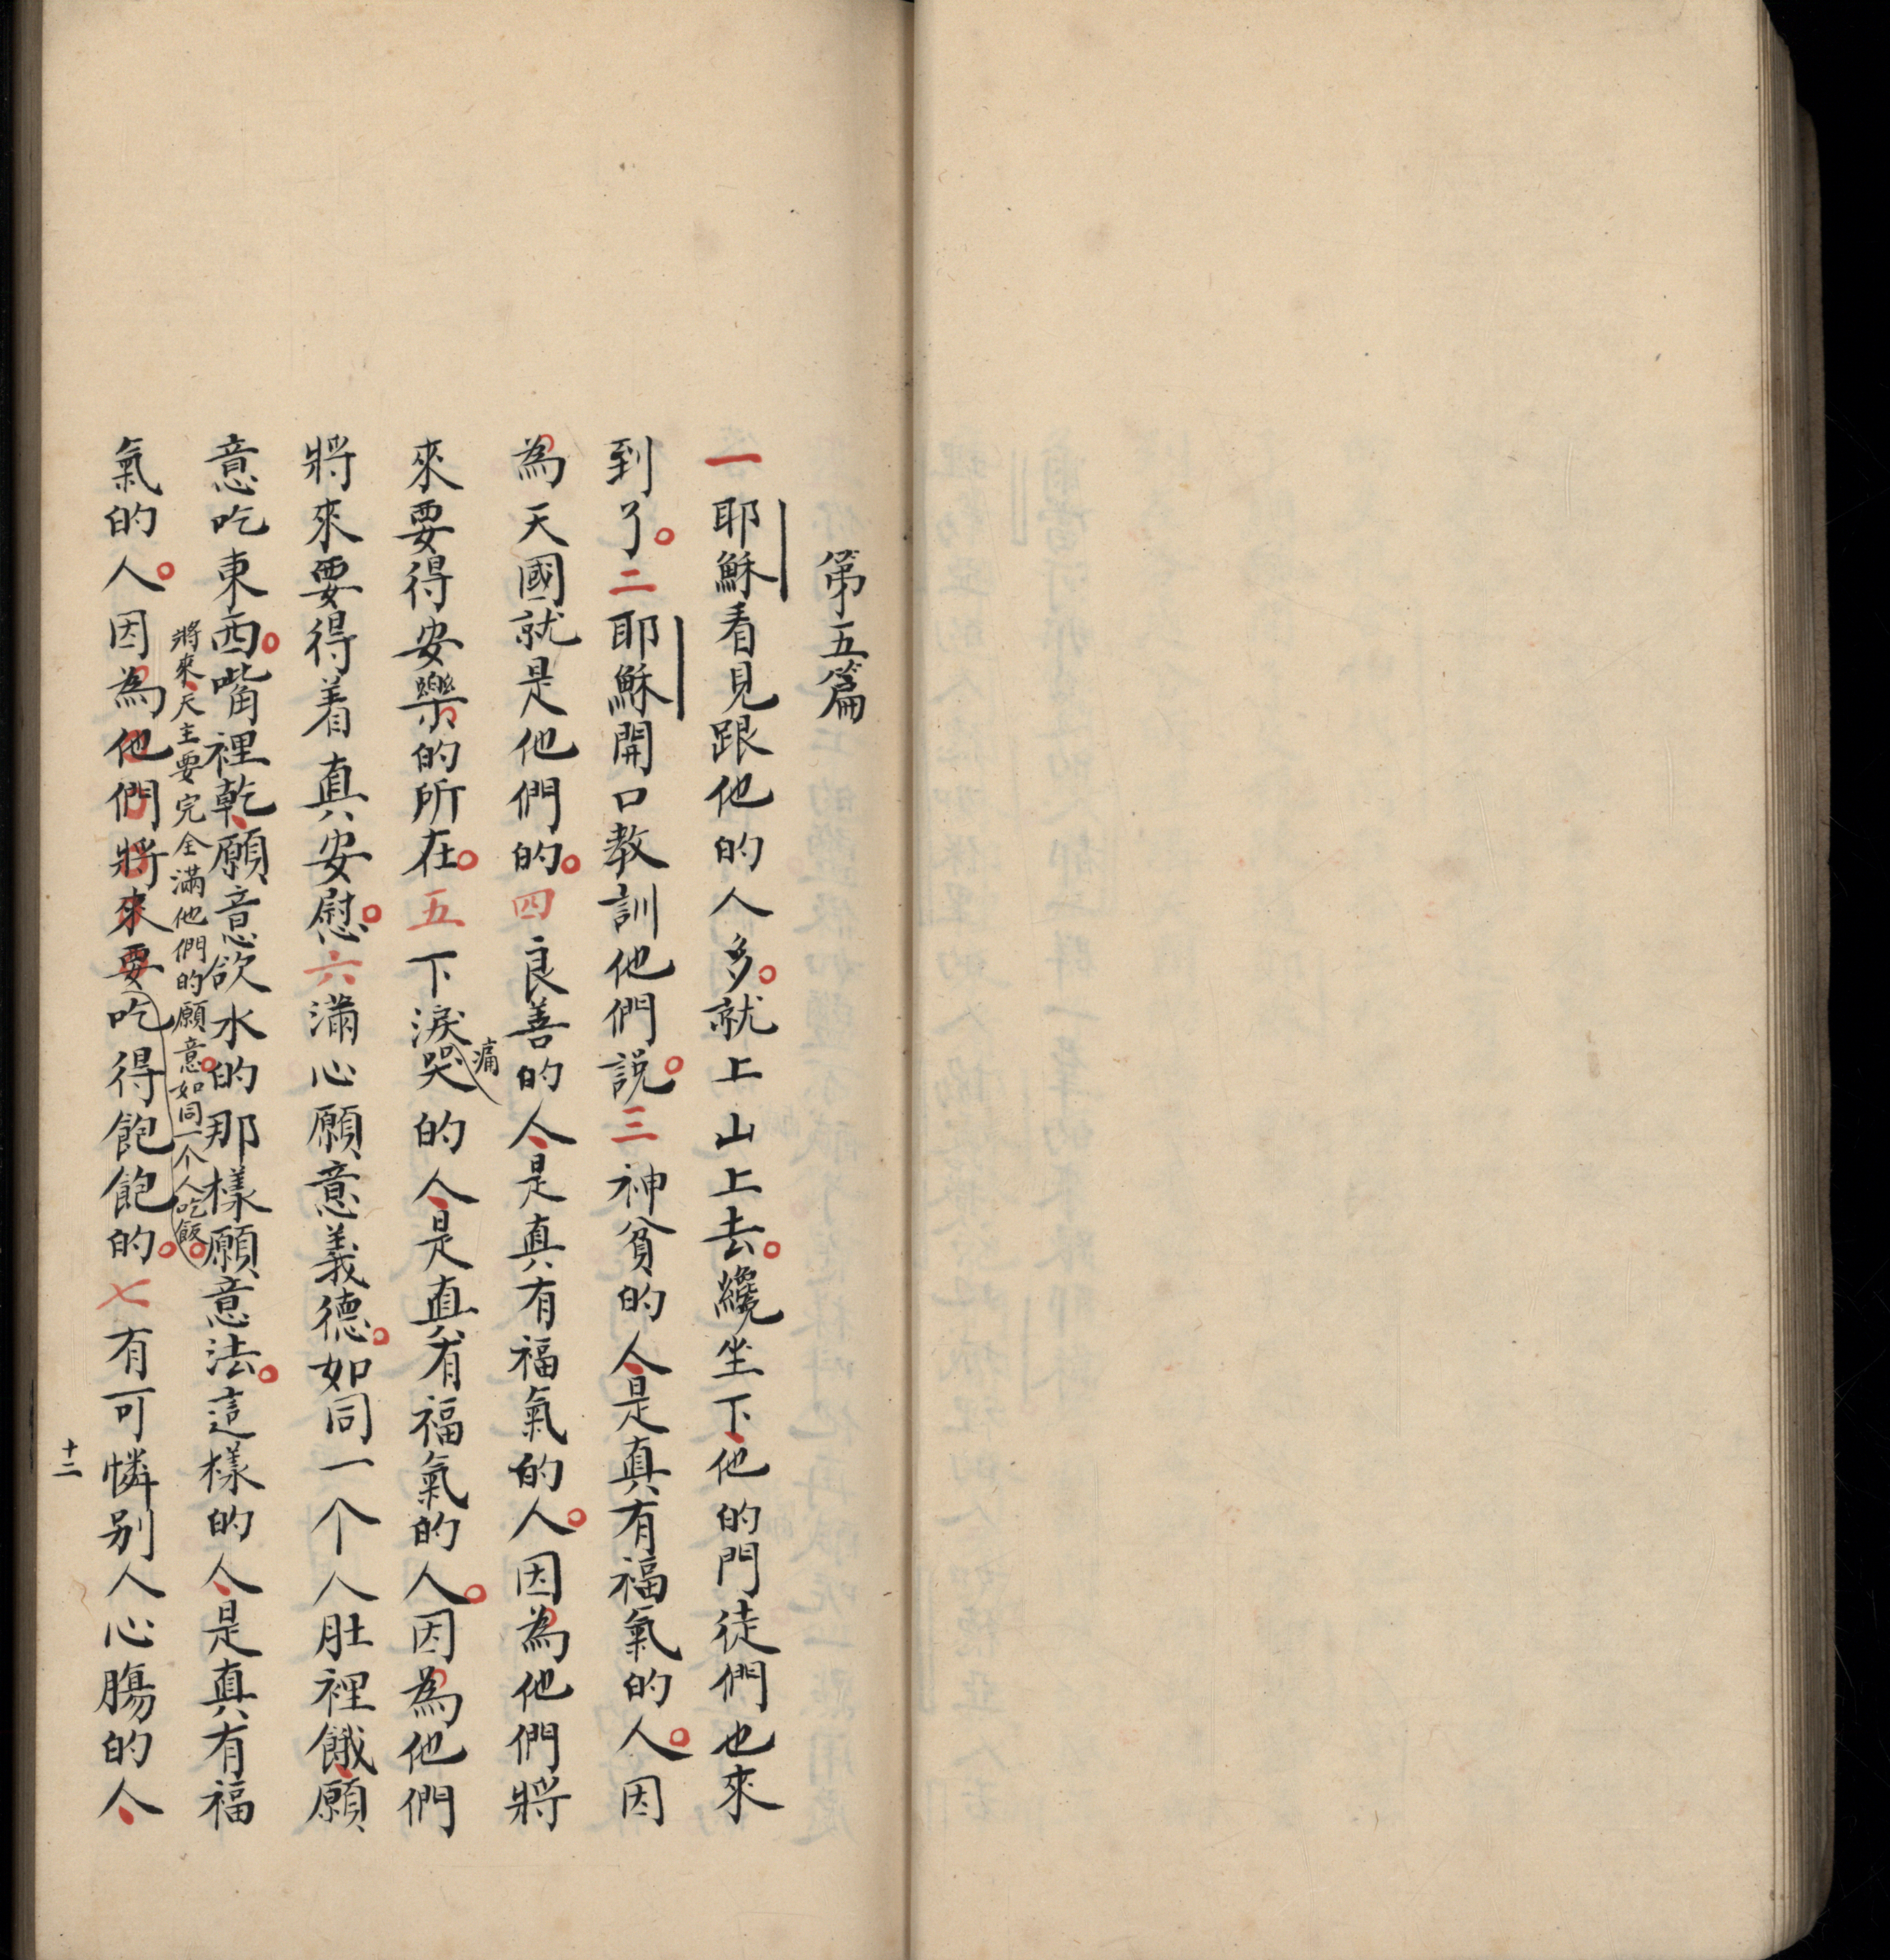 第五篇
一耶穌看見跟他的人多。就上山上去。纔坐下、他的門徒們也來
到了。二耶穌開口教訓他們說。三神貧的人、是真有福氣的人。因
為天國就是他們的。四良善的人、是真有福氣的人。因為他們將
來要得安樂的所在。五下淚哭的人、是真有福氣的人。因為他們
痛
將來要得着真安慰。六滿心願意義德。如同一个人肚裡餓、願
意吃東西。嘴裡乾、願意飲水的那樣願意法。這樣的人、是真有福
將來、天主要完全滿他們的願意。如同一个人吃飯。
氣的人。因為他們將來要吃得飽飽的。七有可憐別人心腸的人、
十二